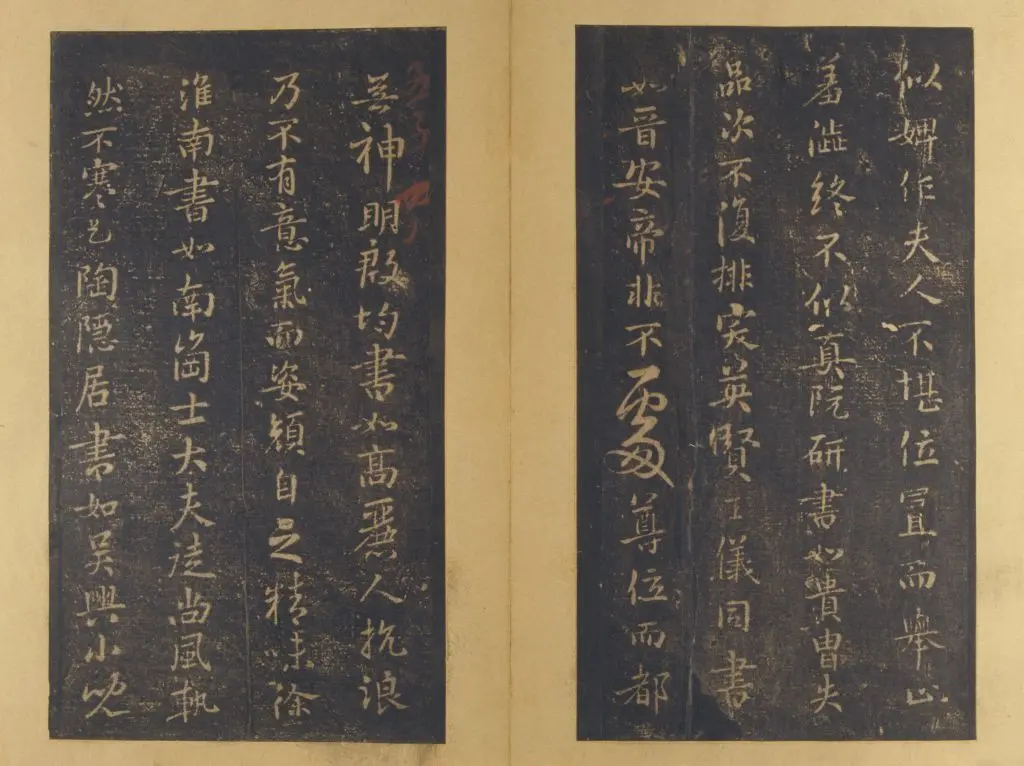 似婢作夫人不堪位置而舉止
羞澁終不似真阮研書如貴胄失
品次不復排突英賢王儀同書
如晉安帝非不處尊位而都
無神明殷均書如高麗人抗浪
乃不有意氣而姿顔自之精味徐
淮南書如南崗士大夫徒尚風軌
然不寒乞陶隱居書如吳興小兒